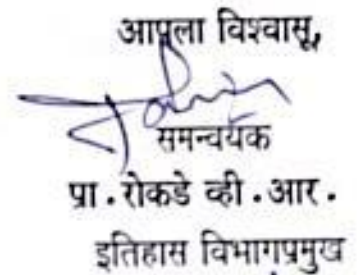 आपला विश्वासू,
समन्वयक
प्रा.रोकडे व्ही.आर.
इतिहास विभागप्रमुख